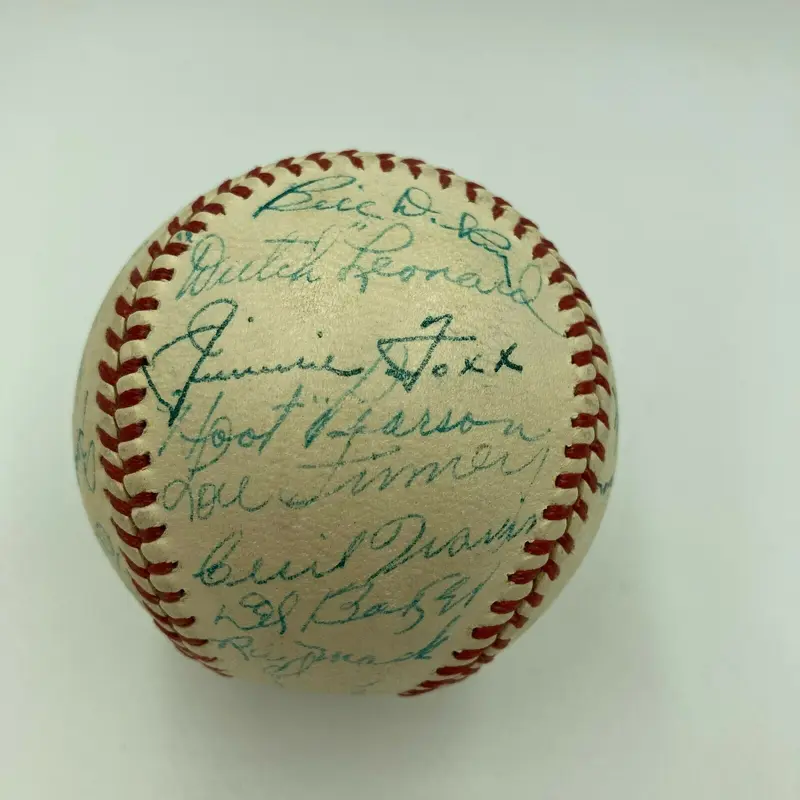 Bill Dickey
"Dutch" Leonard
Jimmie Foxx
"Hoot" Pearson
Lou Finney
Cecil Travis
Del Baker
Ray Mack